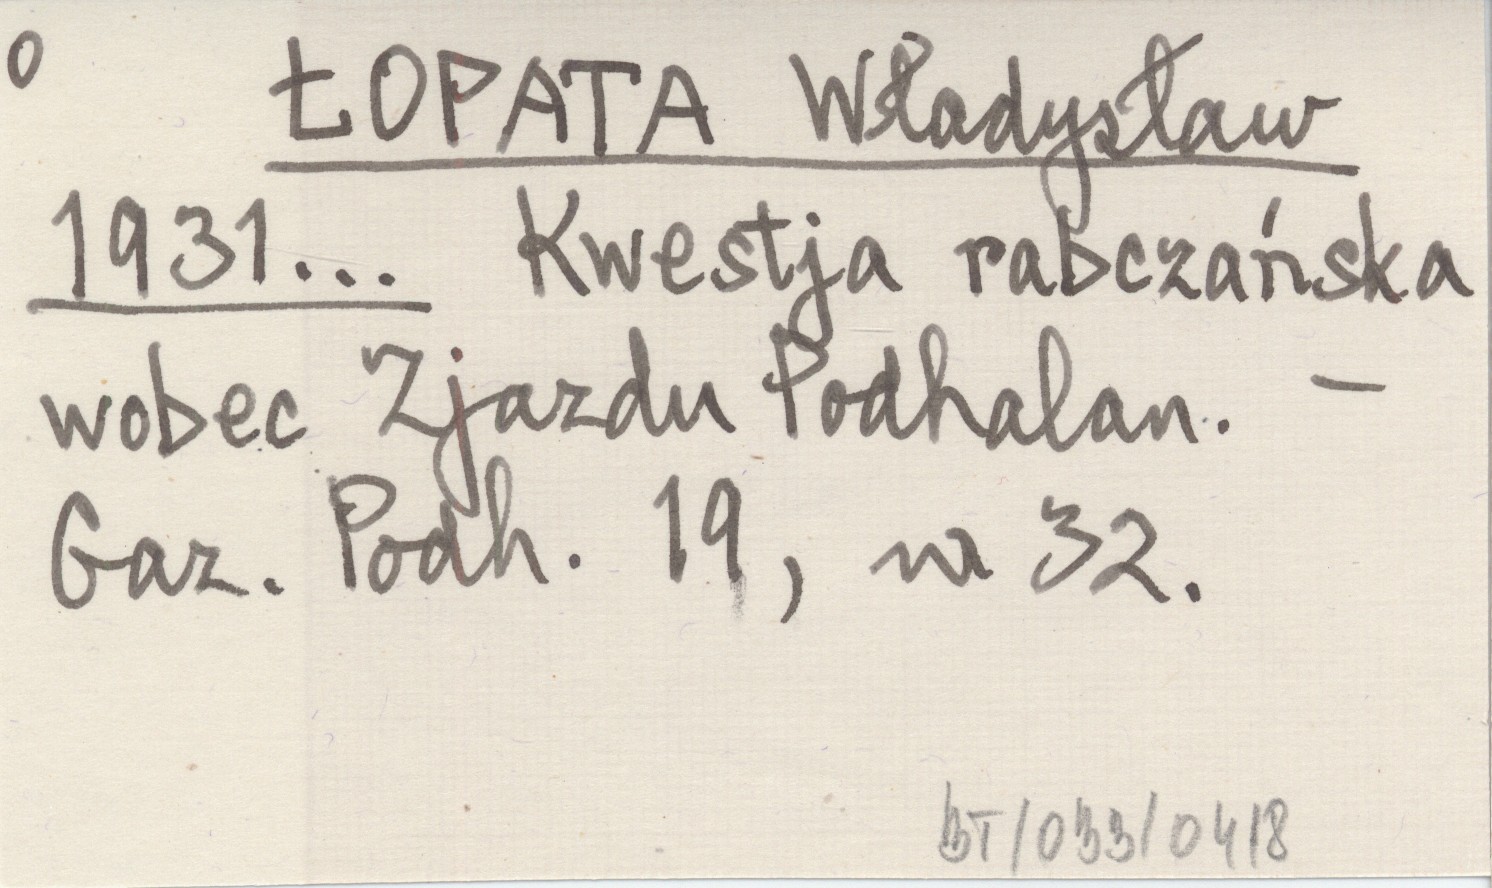 o
ŁOPATA Władysław
1931... Kwestja rabczańska
wobec Zjazdu Podhalan. –
Gaz. Podh. 19, nr 32.
BT/033/0418